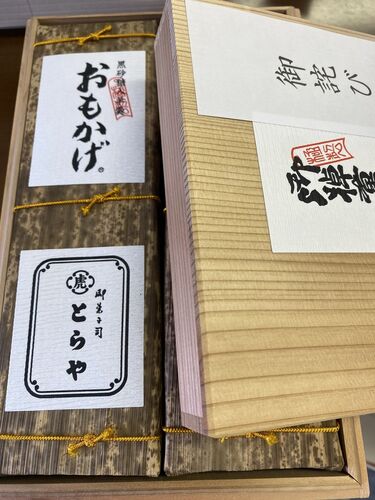 黒砂糖入羊羹
おもかげ®
虎
御菓子司
とらや
御詫び
御棹菓